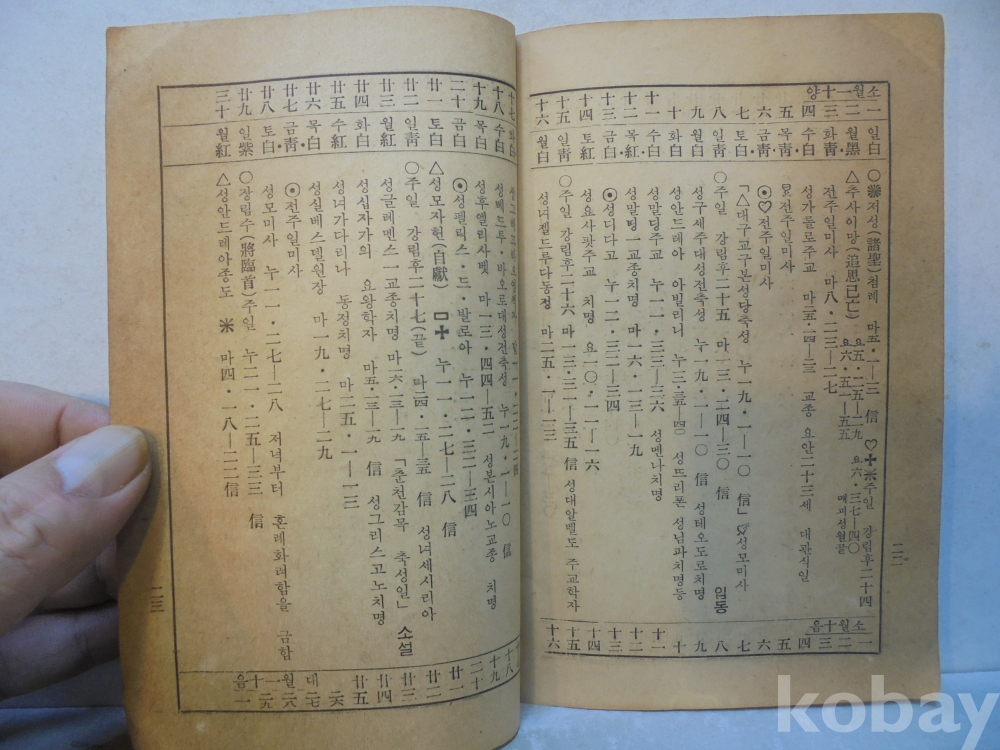 양 소월一十
一 일白 ○저성(諸聖)첨례 마五·一—三 信 ♡✚米주일 강림후二十四
二 월黑 △추사이망(追思已亡) 요五·二五—二九 요六·三七—四〇 매괴성월끝
三 화靑 전주일미사 마八·二三—二七
四 수白 성가롤로주교 마二五·一四—二三 교종 요안二十三세 대관식일
五 목靑· 전주일미사
六 금靑· ⊙♡전주일미사
七 토白 「△대구교구본성당축성 누一九·一—一〇 信」 성모미사
八 일靑 ○주일 강림후二十五 마一三·二四—三〇 信 입동
九 월白 성구세주대성전축성 누一九·一—一〇 信 성테오도로치명
十 화白 성안드레아 아빌리니 성뜨리폰 성님파치명등
十一 수白· 성말딩주교 누一一·三三—三六 성멘나치명
十二 목紅· 성말딩一교종치명 마一六·一三—一九
十三 금白· ⊙성디다고 누一二·三二—三四
十四 토紅 성요사팟주교 치명 요一〇·一一—一六
十五 일靑 ○주일 강림후二十六 마一三·三一—三五 信 성대알벨도 주교학자
十六 월白 성녀젤드루다동정 마二五·一—一三
음 소월十
一 二 三 四 五 六 七 八 九 十 十一 十二 十三 十四 十五 十六
二二
十七 화白
十八 수白· 성베드루·바오로대성전축성 누一九·一—一〇 信
十九 목白 성후엘리사벳 마一三·四四—五二 성본시아노교종 치명
二十 금白 ⊙성펠릭스·드·발로아 누一二·三二—三四
廿一 토白 △성모자헌(自獻) 누一一·二七—二八 信
廿二 일靑 ○주일 강림후二十七(끝) 마二四·一五—三五 信 성녀세시리아
廿三 월紅 성글레멘스一교종치명 마一六·一三—一九 「춘천감목 축성일」 소설
廿四 화白 성십자가의 요왕학자 마五·一三—一九 信 성그리스고노치명
廿五 수紅 성녀가다리나 동정치명 마二五·一—一三
廿六 목白 성실베스델원장 마一九·二七—二九
廿七 금靑· ⊙전주일미사
廿八 토白 성모미사 누一一·二七—二八 저녁부터 혼례화려함을 금함
廿九 일紫 ○장림수(將臨首)주일 누二一·二五—三三 信
三十 월紅 △성안드레아종도 米 마四·一八—二二 信
十八 十九 二十 廿一 廿二 廿三 廿四 廿五
음 대 월一十 一
二三
kobay